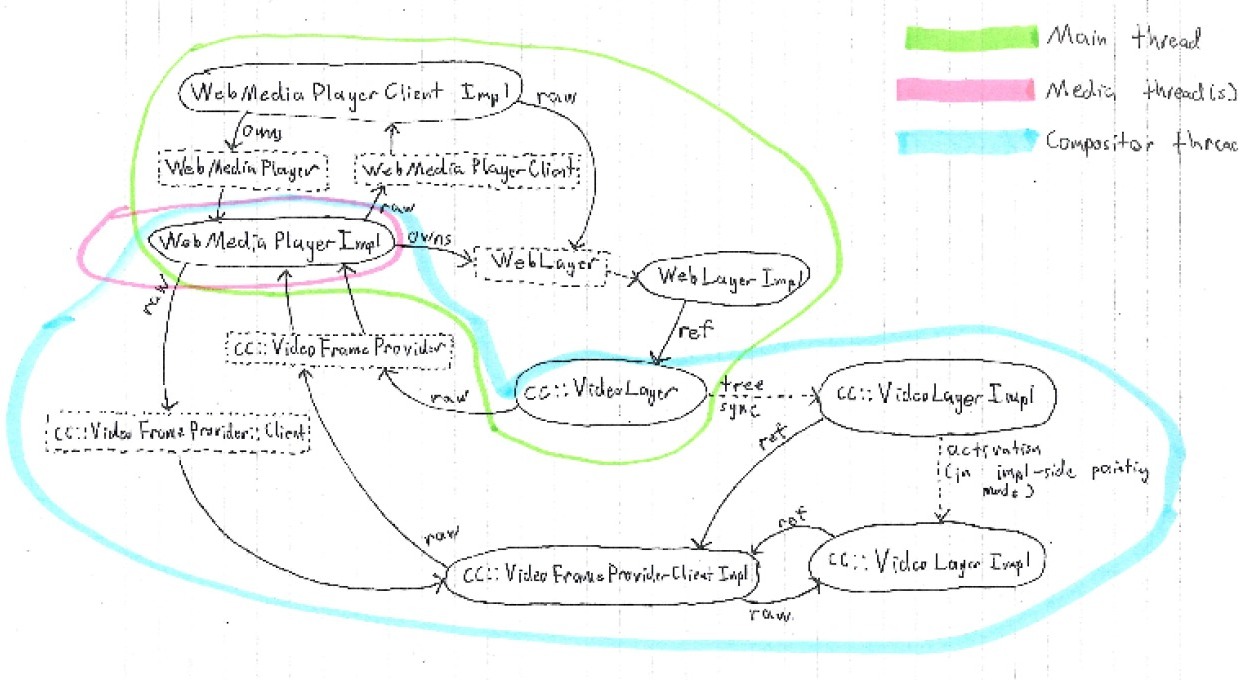 Main thread
Media thread(s)
Compositor threa
WebMediaPlayerClient Impl
raw
owns
WebMediaPlayer
WebMediaPlayerClient
raw
WebMediaPlayerImpl
owns
WebLayer
WebLayerImpl
raw
ref
cc::VideoFrameProvider
raw
cc::VideoLayer
tree
sync
cc::VideoLayerImpl
cc::VideoFrameProvider::Client
ref
activation
(in impl-side painting
mode)
raw
ref
cc::VideoFrameProviderClientImpl
cc::VideoLayerImpl
raw